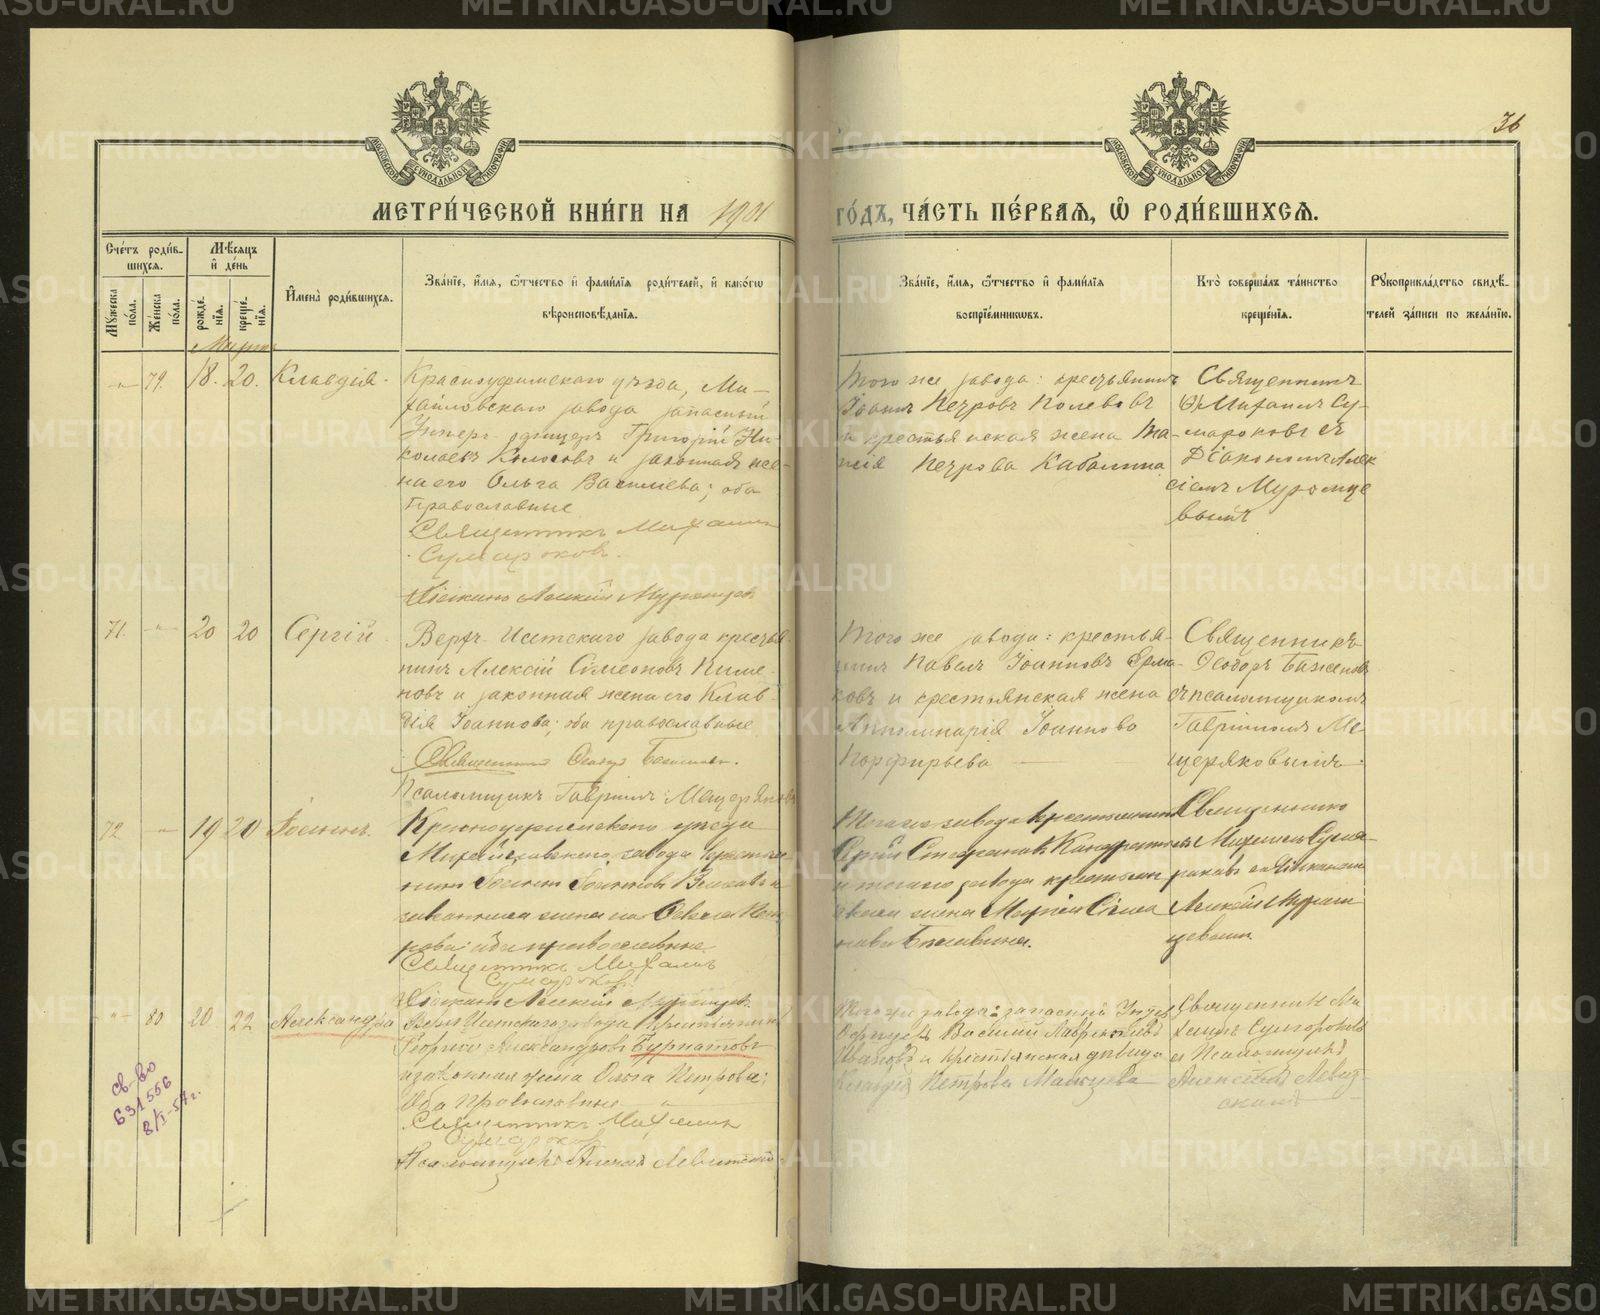 METRIKI.GASO-URAL.RU
36
МОСКОВСКОЙ СѴНОДАЛЬНОЙ ТИПОГРАФІИ
МЕТРИ́ЧЕСКОЙ КНИ́ГИ НА 1901 ГО́ДЪ, ЧА́СТЬ ПЕ́РВАЯ, Ѡ РОДИ́ВШИХСЯ.
Сче́тъ роди́в-
шихся.
Му́жеска по́ла.
Же́нска по́ла.
Мѣ́сяцъ
и́ де́нь
рожде́-
нїя.
креще́-
нїя.
И҆мена̀ роди́вшихся.
Зва́нїе, и҆́мя, ѻ҆́тчество и҆ фами́лїя роди́телей, и҆ како́гѡ
вѣроисповѣ́данїя.
Зва́нїе, и҆́мя, ѻ҆́тчество и҆ фами́лїя
воспрїе́мниковъ.
Кто̀ соверша́лъ та́инство
креще́нїя.
Рукоприкла́дство свидѣ́-
телей за́писи по жела́нію.
Марта
79. 18. 20. Клавдія.
Красноуфимскаго уѣзда, Ми-
хайловскаго завода запасный
Унтеръ-офицеръ Григорій Ни-
колаевъ Колосовъ и законная же-
на его Ольга Васильева; оба
православные
Священникъ Михаилъ
Сумароковъ.
Діаконъ Алексій Муромцевъ
Того же завода: крестьянинъ
Іоаннъ Петровъ Полевовъ
и крестьянская жена Та-
исія Петрова Кабалина
Священникъ
Михаилъ Су-
мароковъ съ
Діакономъ Алек
сіемъ Муромце
вымъ
71. 20 20 Сергій
Верхъ-Исетскаго завода крестья
нинъ Алексій Симеоновъ Пиме-
новъ и законная жена его Клав-
дія Іоаннова; оба православные
Священникъ Ѳеодоръ Баженовъ.
Псаломщикъ Гавріилъ Мещеряковъ
Того же завода: крестья-
нинъ Павелъ Іоанновъ Ерма-
ковъ и крестьянская жена
Апполинарія Іоаннова
Порфирьева
Священникъ
Ѳеодоръ Баженовъ
съ псаломщикомъ
Гавріиломъ Ме-
щеряковымъ
72 19 20 Іоаннъ.
Красноуфимскаго уѣзда
Михайловскаго завода крестья-
нинъ Іоаннъ Іоанновъ и
законная жена его Ѳекла Пет
рова; оба православные
Священникъ Михаилъ
Сумароковъ.
Діаконъ Алексій Муромцевъ
Того же завода крестьянинъ
Стефановъ
и того же завода крестьян
ская жена Марія
Священникъ
Михаилъ Сума-
роковъ съ Діаконом
Алексіемъ Муром
цевымъ
80 20 22 Александра
Верхъ Исетскаго завода Крестьянинъ
Георгій Александровъ Бурматовъ
и законная жена Ольга Петрова:
Оба Православные
Священникъ Михаилъ
Сумароковъ
Псаломщикъ Алексѣй Левитскій
Того же завода: запасный Унтеръ
Офицеръ Василій Лаврентьевъ
Ивановъ и Крестьянская дѣвица
Клавдія Петрова Мальцева
Священникъ Ми
хаилъ Сумароковъ
съ Псаломщикомъ
Алексѣемъ Левит-
скимъ
св-во
631556
8/I-57г.